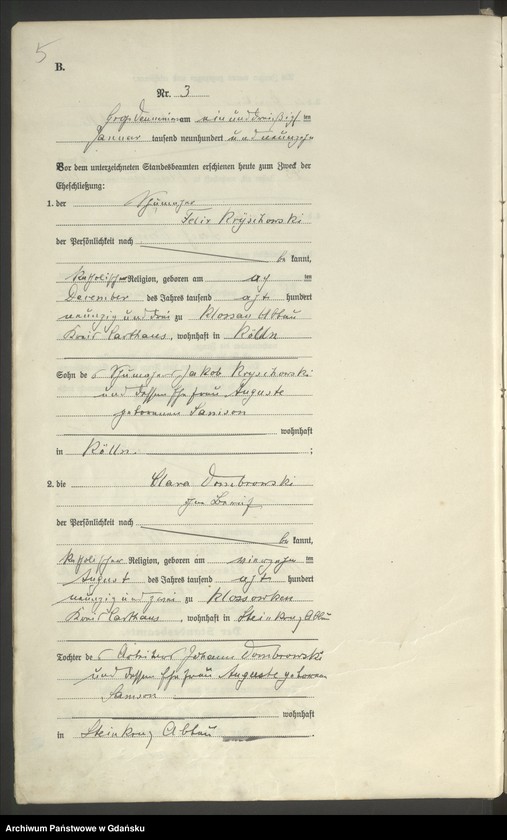 5
B.
Nr. 3
am ein und dreißig ten
Januar tausend neunhundert und neunzehn
Vor dem unterzeichneten Standesbeamten erschienen heute zum Zweck der
Eheschließung:
1. der
Felix Royschowski
der Persönlichkeit nach
be kannt,
katholischer Religion, geboren am ten
Dezember des Jahres tausend acht hundert
neunzig und drei zu Klossau Abbau
Kreis Carthaus, wohnhaft in Kölln
Sohn des Jakob Royschowski
und dessen Ehefrau Auguste
geborenen Samson
wohnhaft
in Kölln. ;
2. die Clara Dombrowski
der Persönlichkeit nach
be kannt,
katholischer Religion, geboren am vierzehn ten
August des Jahres tausend acht hundert
neunzig und zwei zu
Kreis Carthaus, wohnhaft in
Tochter des Arbeiters Johann Dombrowski
und dessen Ehefrau Auguste geborenen
Samson
wohnhaft
in Abbau .
Archiwum Państwowe w Gdańsku